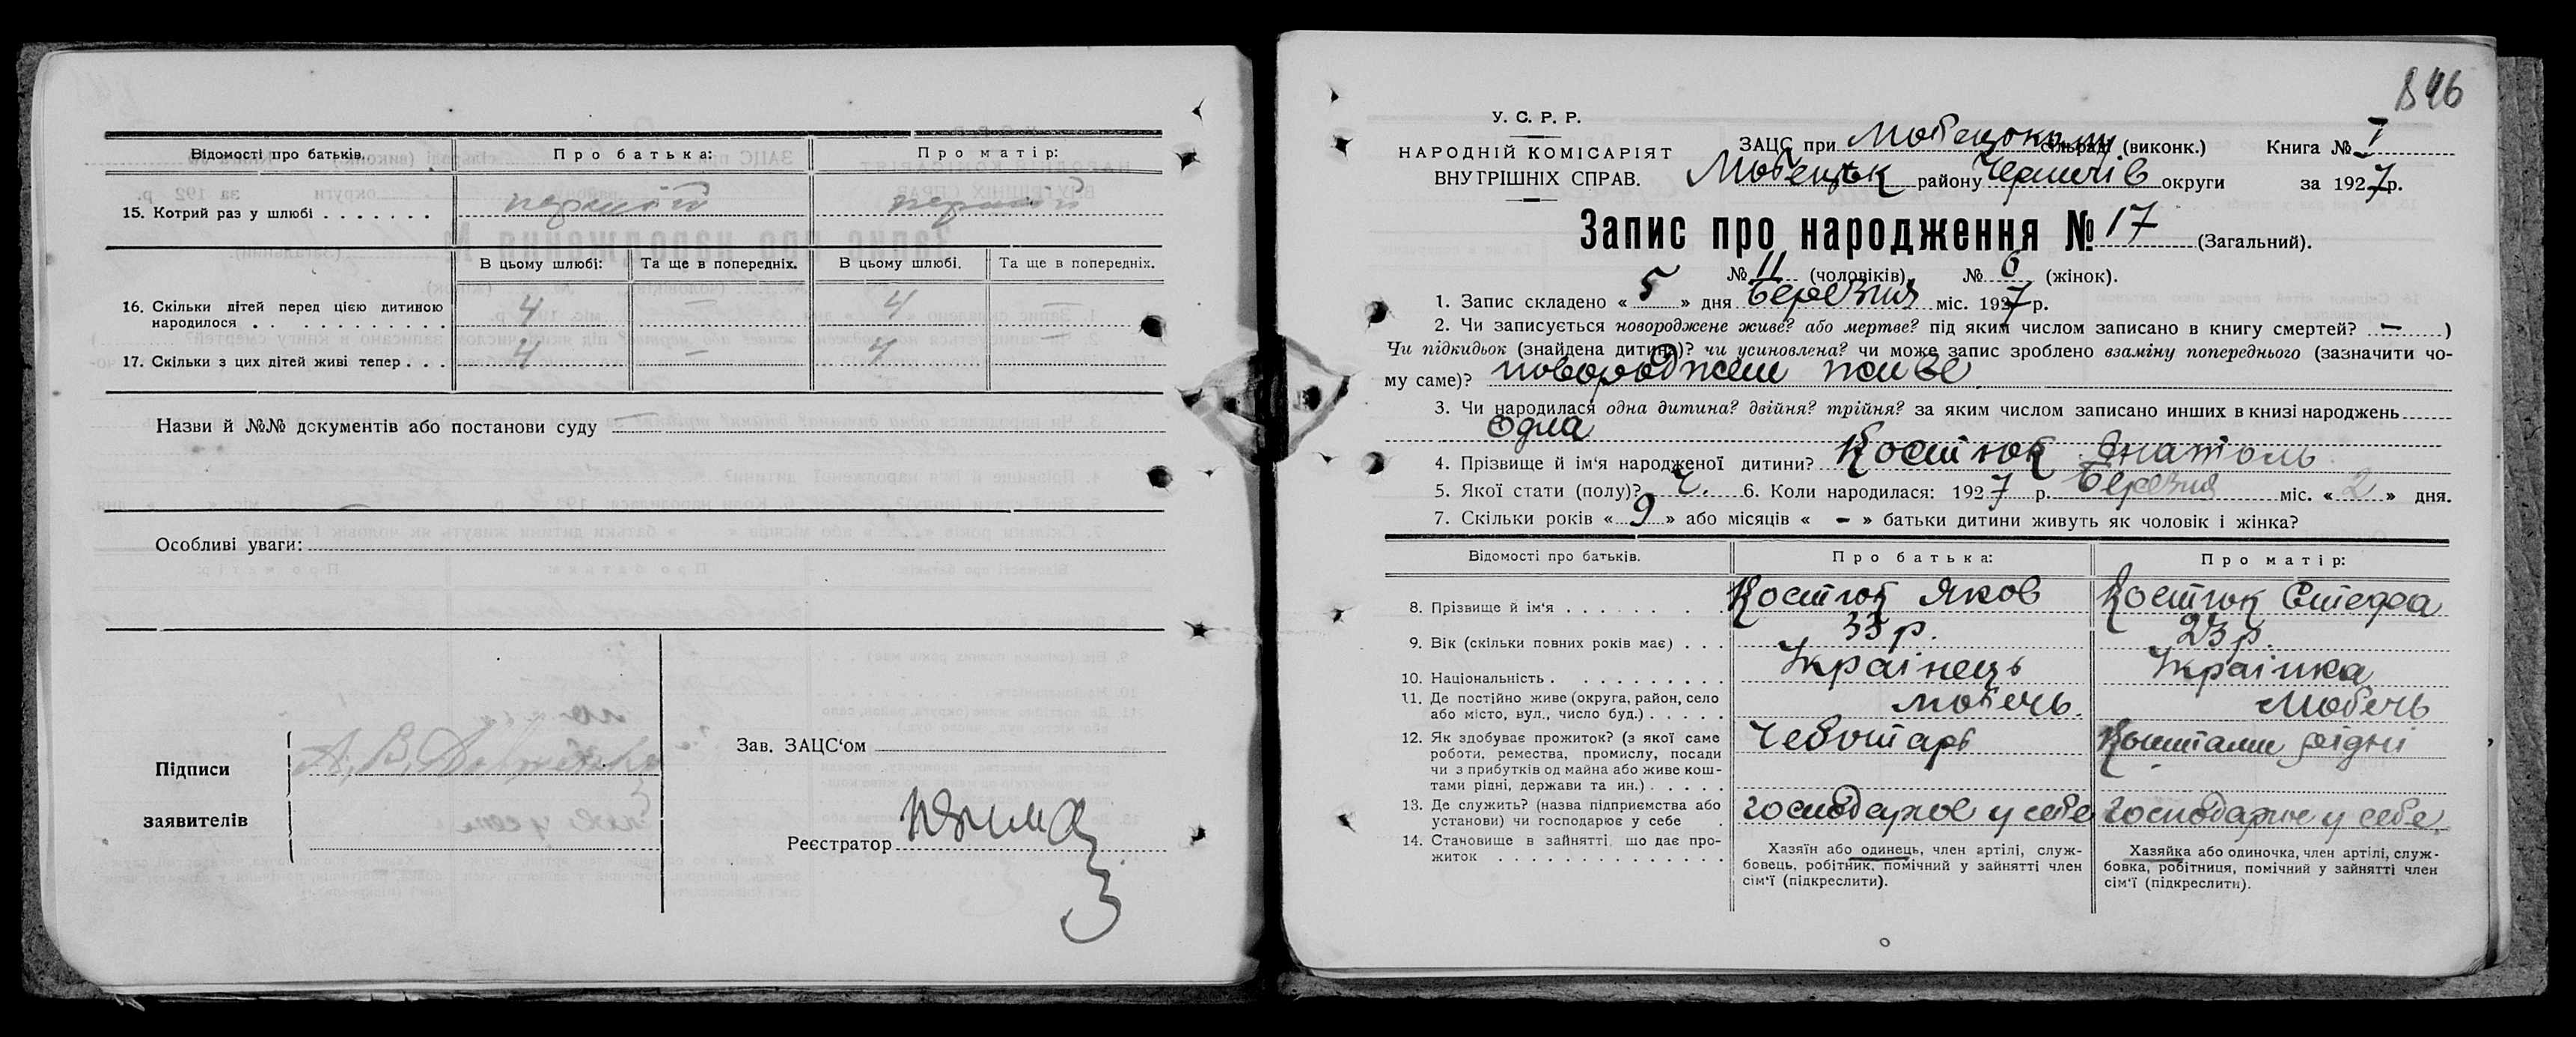 Відомості про батьків. Про батька: Про матір:
15. Котрий раз у шлюбі . . . . . . . перший перший
В цьому шлюбі: Та ще в попередніх. В цьому шлюбі. Та ще в попередніх.
16. Скільки дітей перед цією дитиною
народилося . . . . . . . . . . . 4 — 4 —
17. Скільки з цих дітей живі тепер . . . 4 — 4 —
Назви й №№ документів або постанови суду —
Особливі уваги:
Підписи
заявителів
А. В.
Зав. ЗАЦС'ом
Реєстратор
846
У. С. Р. Р.
НАРОДНІЙ КОМІСАРІЯТ
ВНУТРІШНІХ СПРАВ.
ЗАЦС при сільраді (виконк.) Книга № I
району Чернигів округи за 1927 р.
Запис про народження № 17 (Загальний).
№ 11 (чоловіків), № 6 (жінок).
1. Запис складено « 5 » дня Березня міс. 1927 р.
2. Чи записується новороджене живе? або мертве? під яким числом записано в книгу смертей? — )
Чи підкидьок (знайдена дитина)? чи усиновлена? чи може запис зроблено взаміну попереднього (зазначити чо-
му саме)? новороджене живе
3. Чи народилася одна дитина? двійня? трійня? за яким числом записано инших в книзі народжень
одна
4. Прізвище й ім'я народженої дитини? Костюк Анатоль
5. Якої стати (полу)? ч. 6. Коли народилася: 1927 р. Березня міс. « 2 » дня.
7. Скільки років « 9 » або місяців « - » батьки дитини живуть як чоловік і жінка?
Відомості про батьків. Про батька: Про матір:
8. Прізвище й ім'я . . . . . . . . Костюк Яков Костюк Стефа
9. Вік (скільки повних років має) . . . 33 р. 23 р.
10. Національність . . . . . . . . . . Українець Українка
11. Де постійно живе (округа, район, село
або місто, вул., число буд.) . . . . . Любечь. Любечь
12. Як здобуває прожиток? (з якої саме
роботи, ремества, промислу, посади
чи з прибутків од майна або живе кош-
тами рідні, держави та ин.) . . . . . Чеботарь Коштами рідні
13. Де служить? (назва підприємства або
установи) чи господарює у себе . господарює у себе господарює у себе
14. Становище в зайнятті, що дає про-
житок . . . . . . . . . . . . . .
Хазяїн або одинець, член артілі, служ-
бовець, робітник, помічний у зайнятті член
сім'ї (підкреслити).
Хазяйка або одиночка, член артілі, служ-
бовка, робітниця, помічний у зайнятті член
сім'ї (підкреслити).